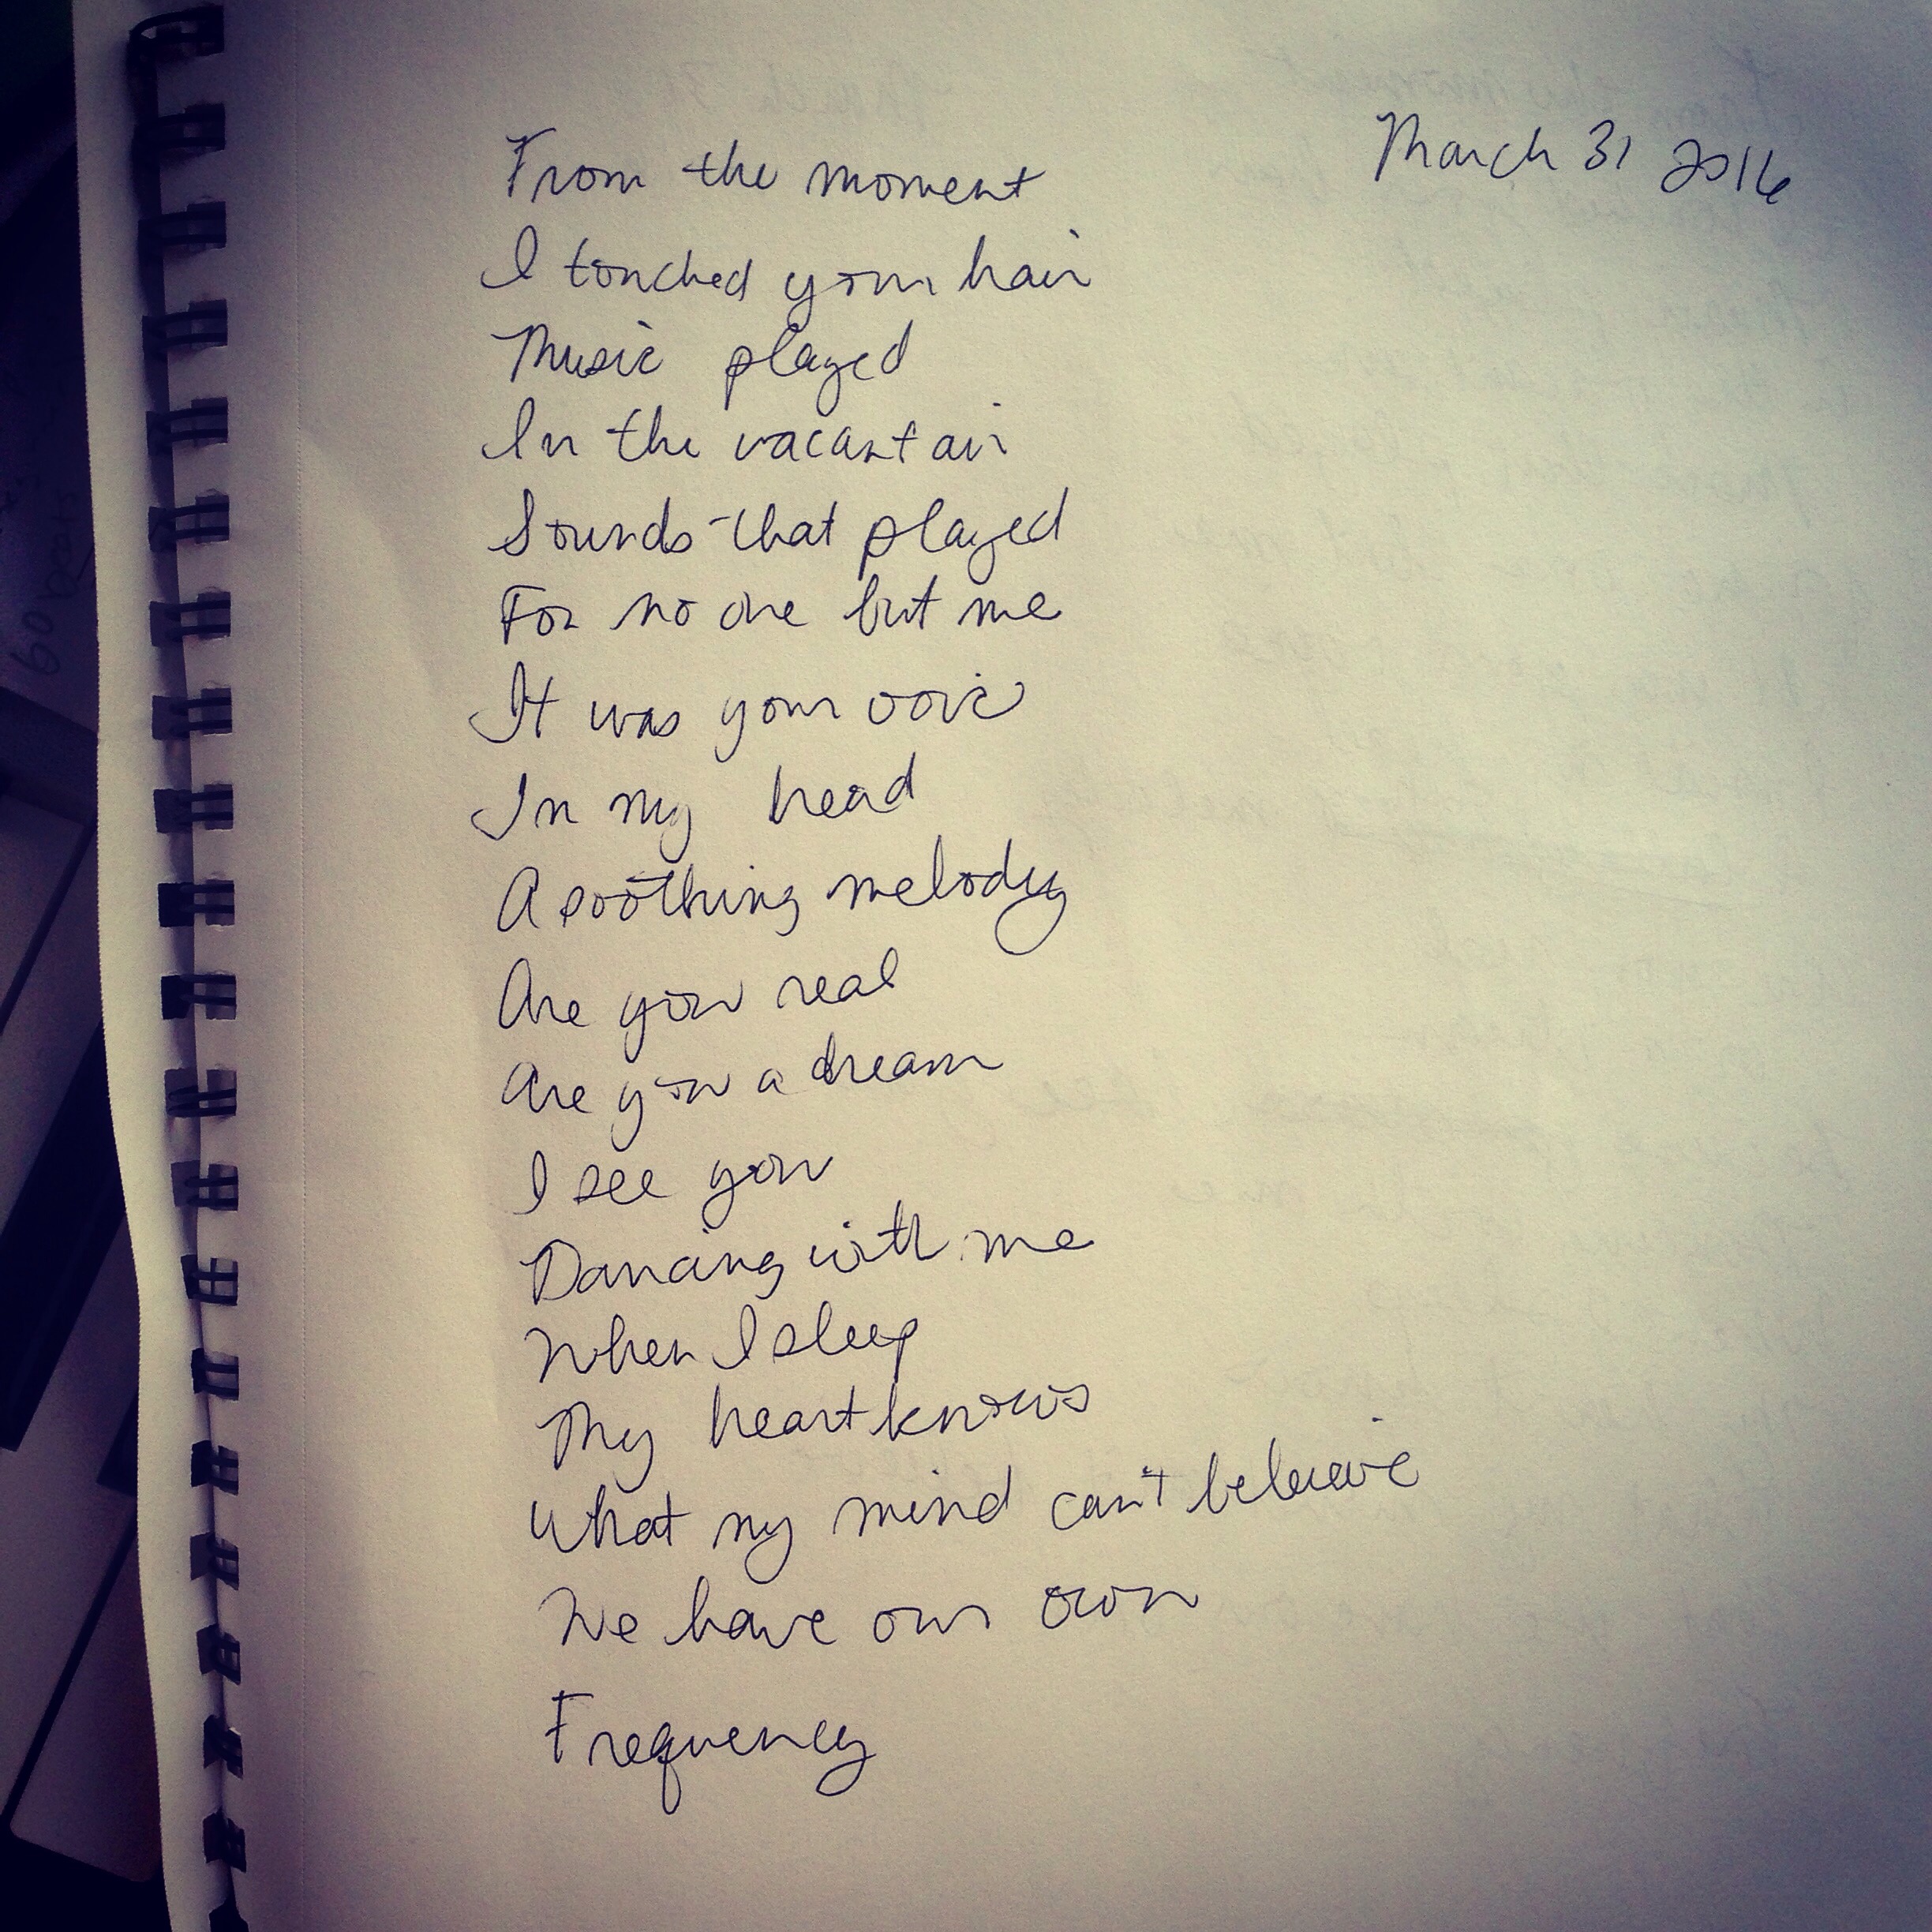 March 31 2016
From the moment
I touched your hair
Music played
In the vacant air
Sounds that played
For no one but me
It was your voice
In my head
A soothing melody
Are you real
Are you a dream
I see you
Dancing with me
When I sleep
My heart knows
What my mind can't believe
We have our own
Frequency